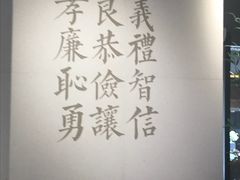 義禮智信
良恭儉讓
孝廉恥勇